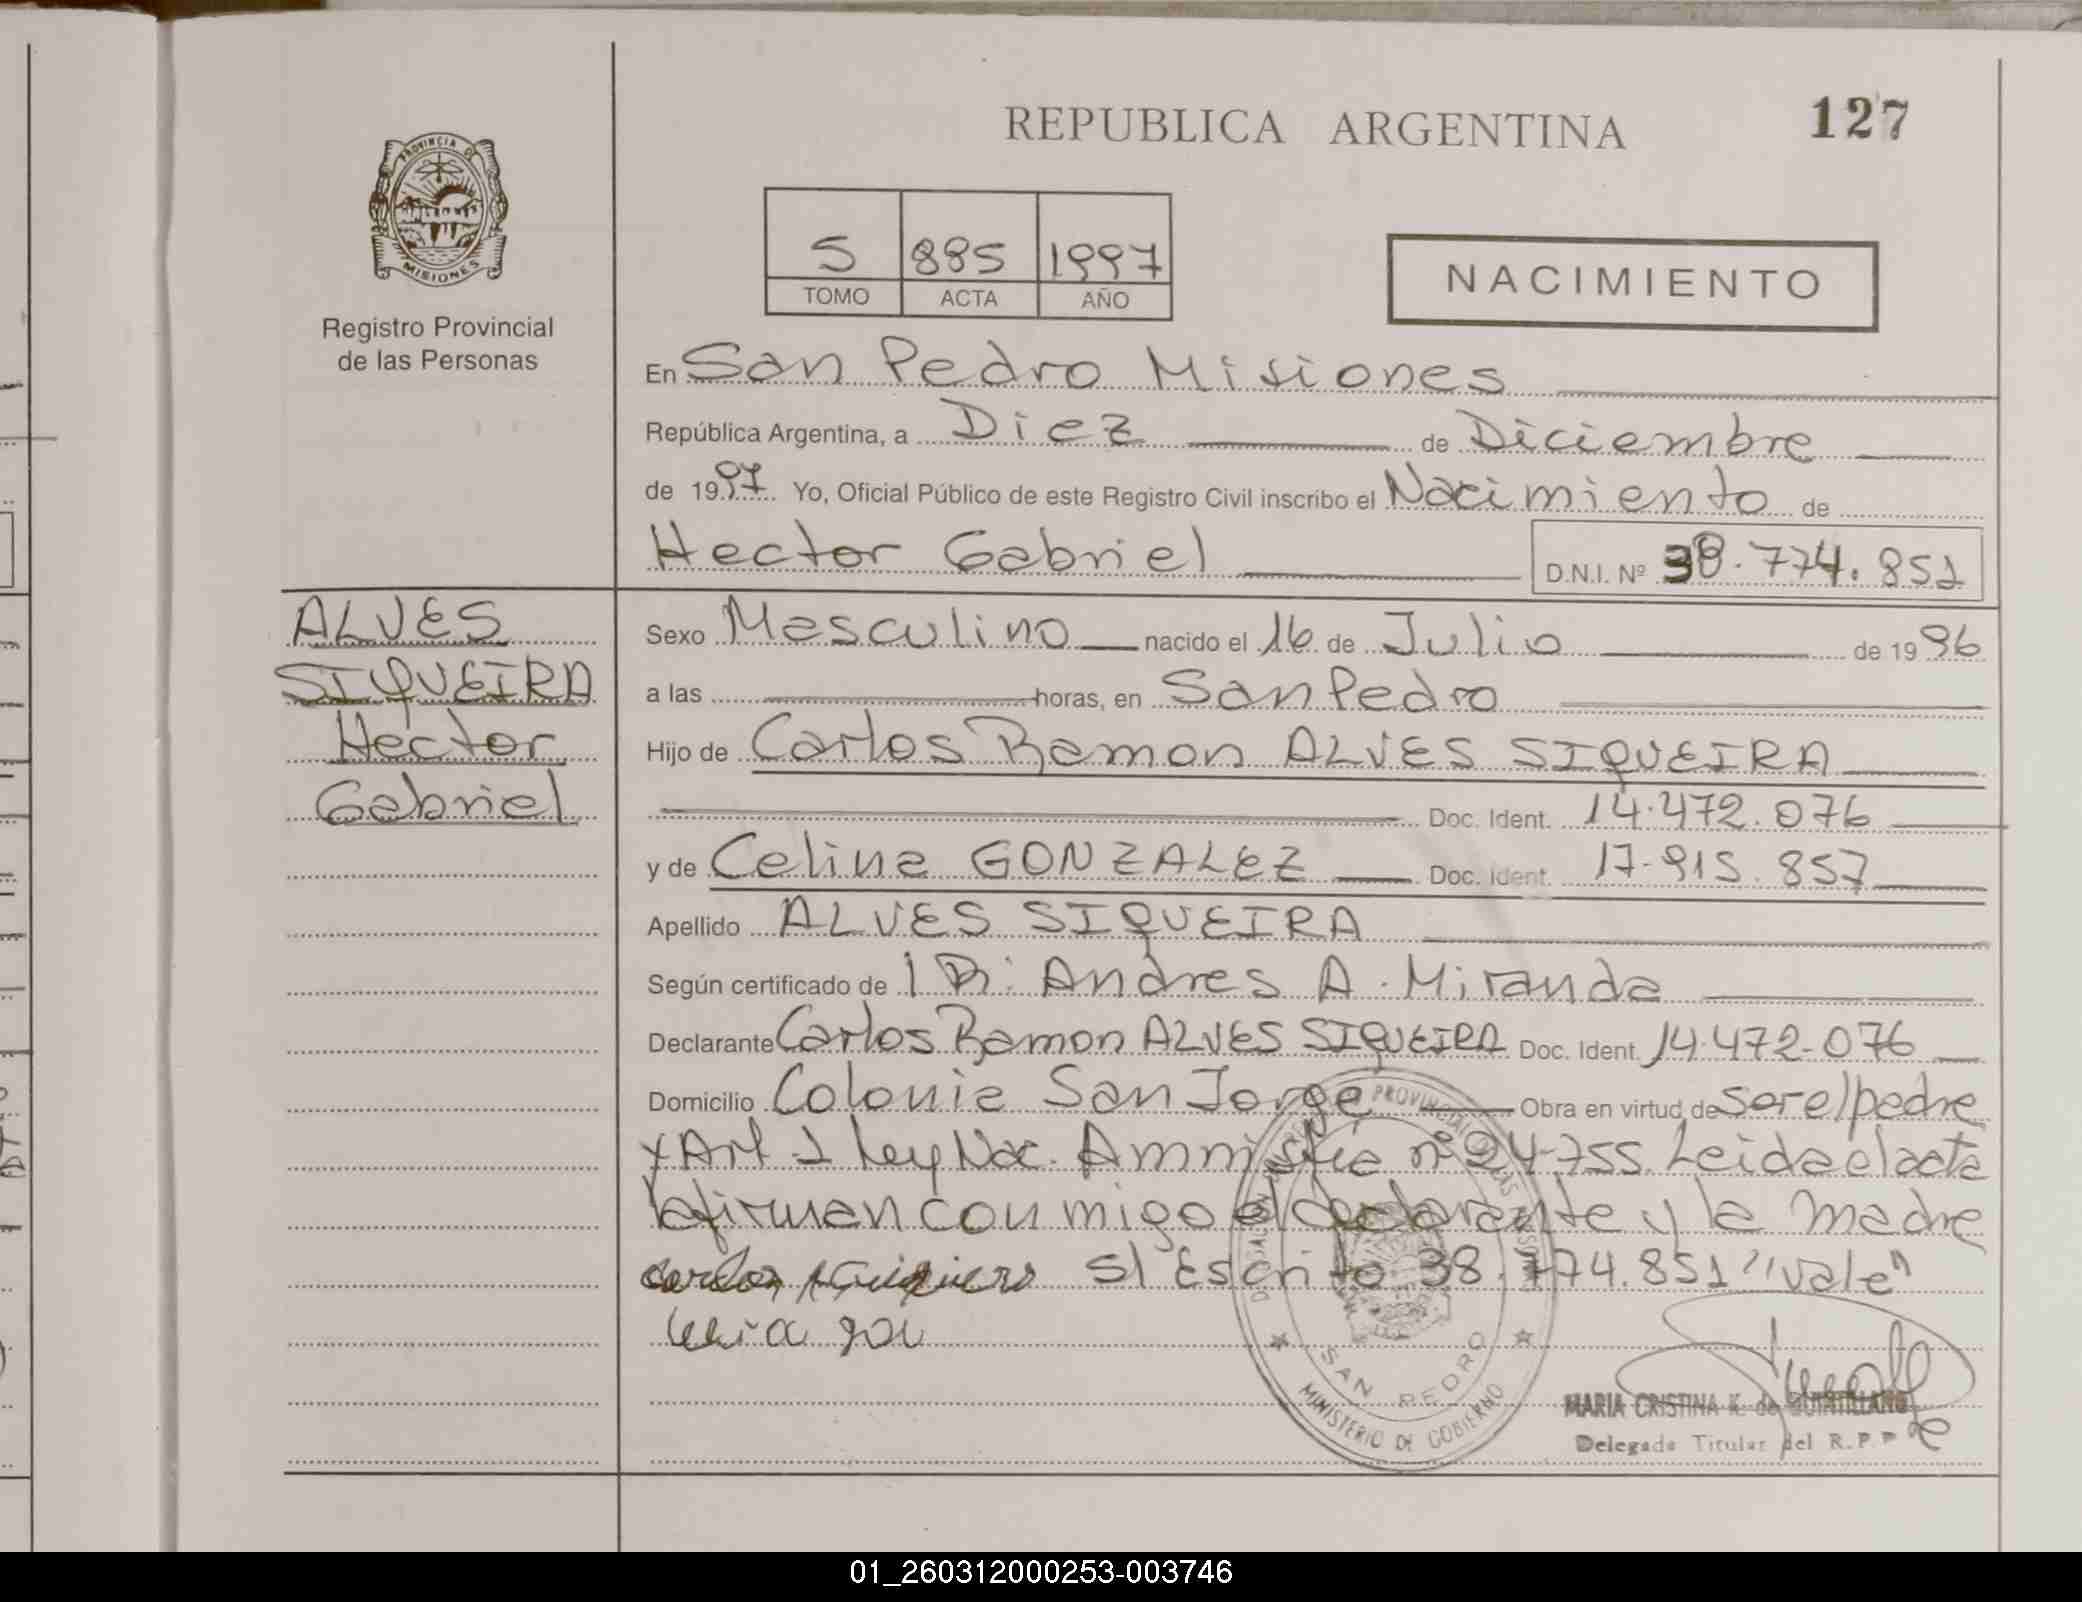 REPUBLICA ARGENTINA
127
PROVINCIA DE
MISIONES
Registro Provincial
de las Personas
5 885 1997
TOMO ACTA AÑO
NACIMIENTO
En San Pedro Misiones
República Argentina, a Diez de Diciembre
de 1997 Yo, Oficial Público de este Registro Civil inscribo el Nacimiento de
Hector Gabriel D.N.I. Nº 38.774.851
ALVES
SIQUEIRA
Hector
Gabriel
Sexo Masculino nacido el 16 de Julio de 1996
a las horas, en San Pedro
Hijo de Carlos Ramon ALVES SIQUEIRA
Doc. Ident. 14.472.076
y de Celina GONZALEZ Doc. Ident. 17.915.857
Apellido ALVES SIQUEIRA
Según certificado de Andres A. Miranda
Declarante Carlos Ramon ALVES SIQUEIRA Doc. Ident. 14.472.076
Domicilio Colonia San Jorge Obra en virtud de ser el padre
y Art 1 Ley Nac. Amnistia nº 24.755. Leida el acta
la firman con migo el declarante y la madre
S/ Escrito 38.774.851 "vale"
SAN PEDRO
MINISTERIO DE GOBIERNO
MARIA CRISTINA K. de QUINTILLANO
Delegada Titular del R.P.P
01_260312000253-003746